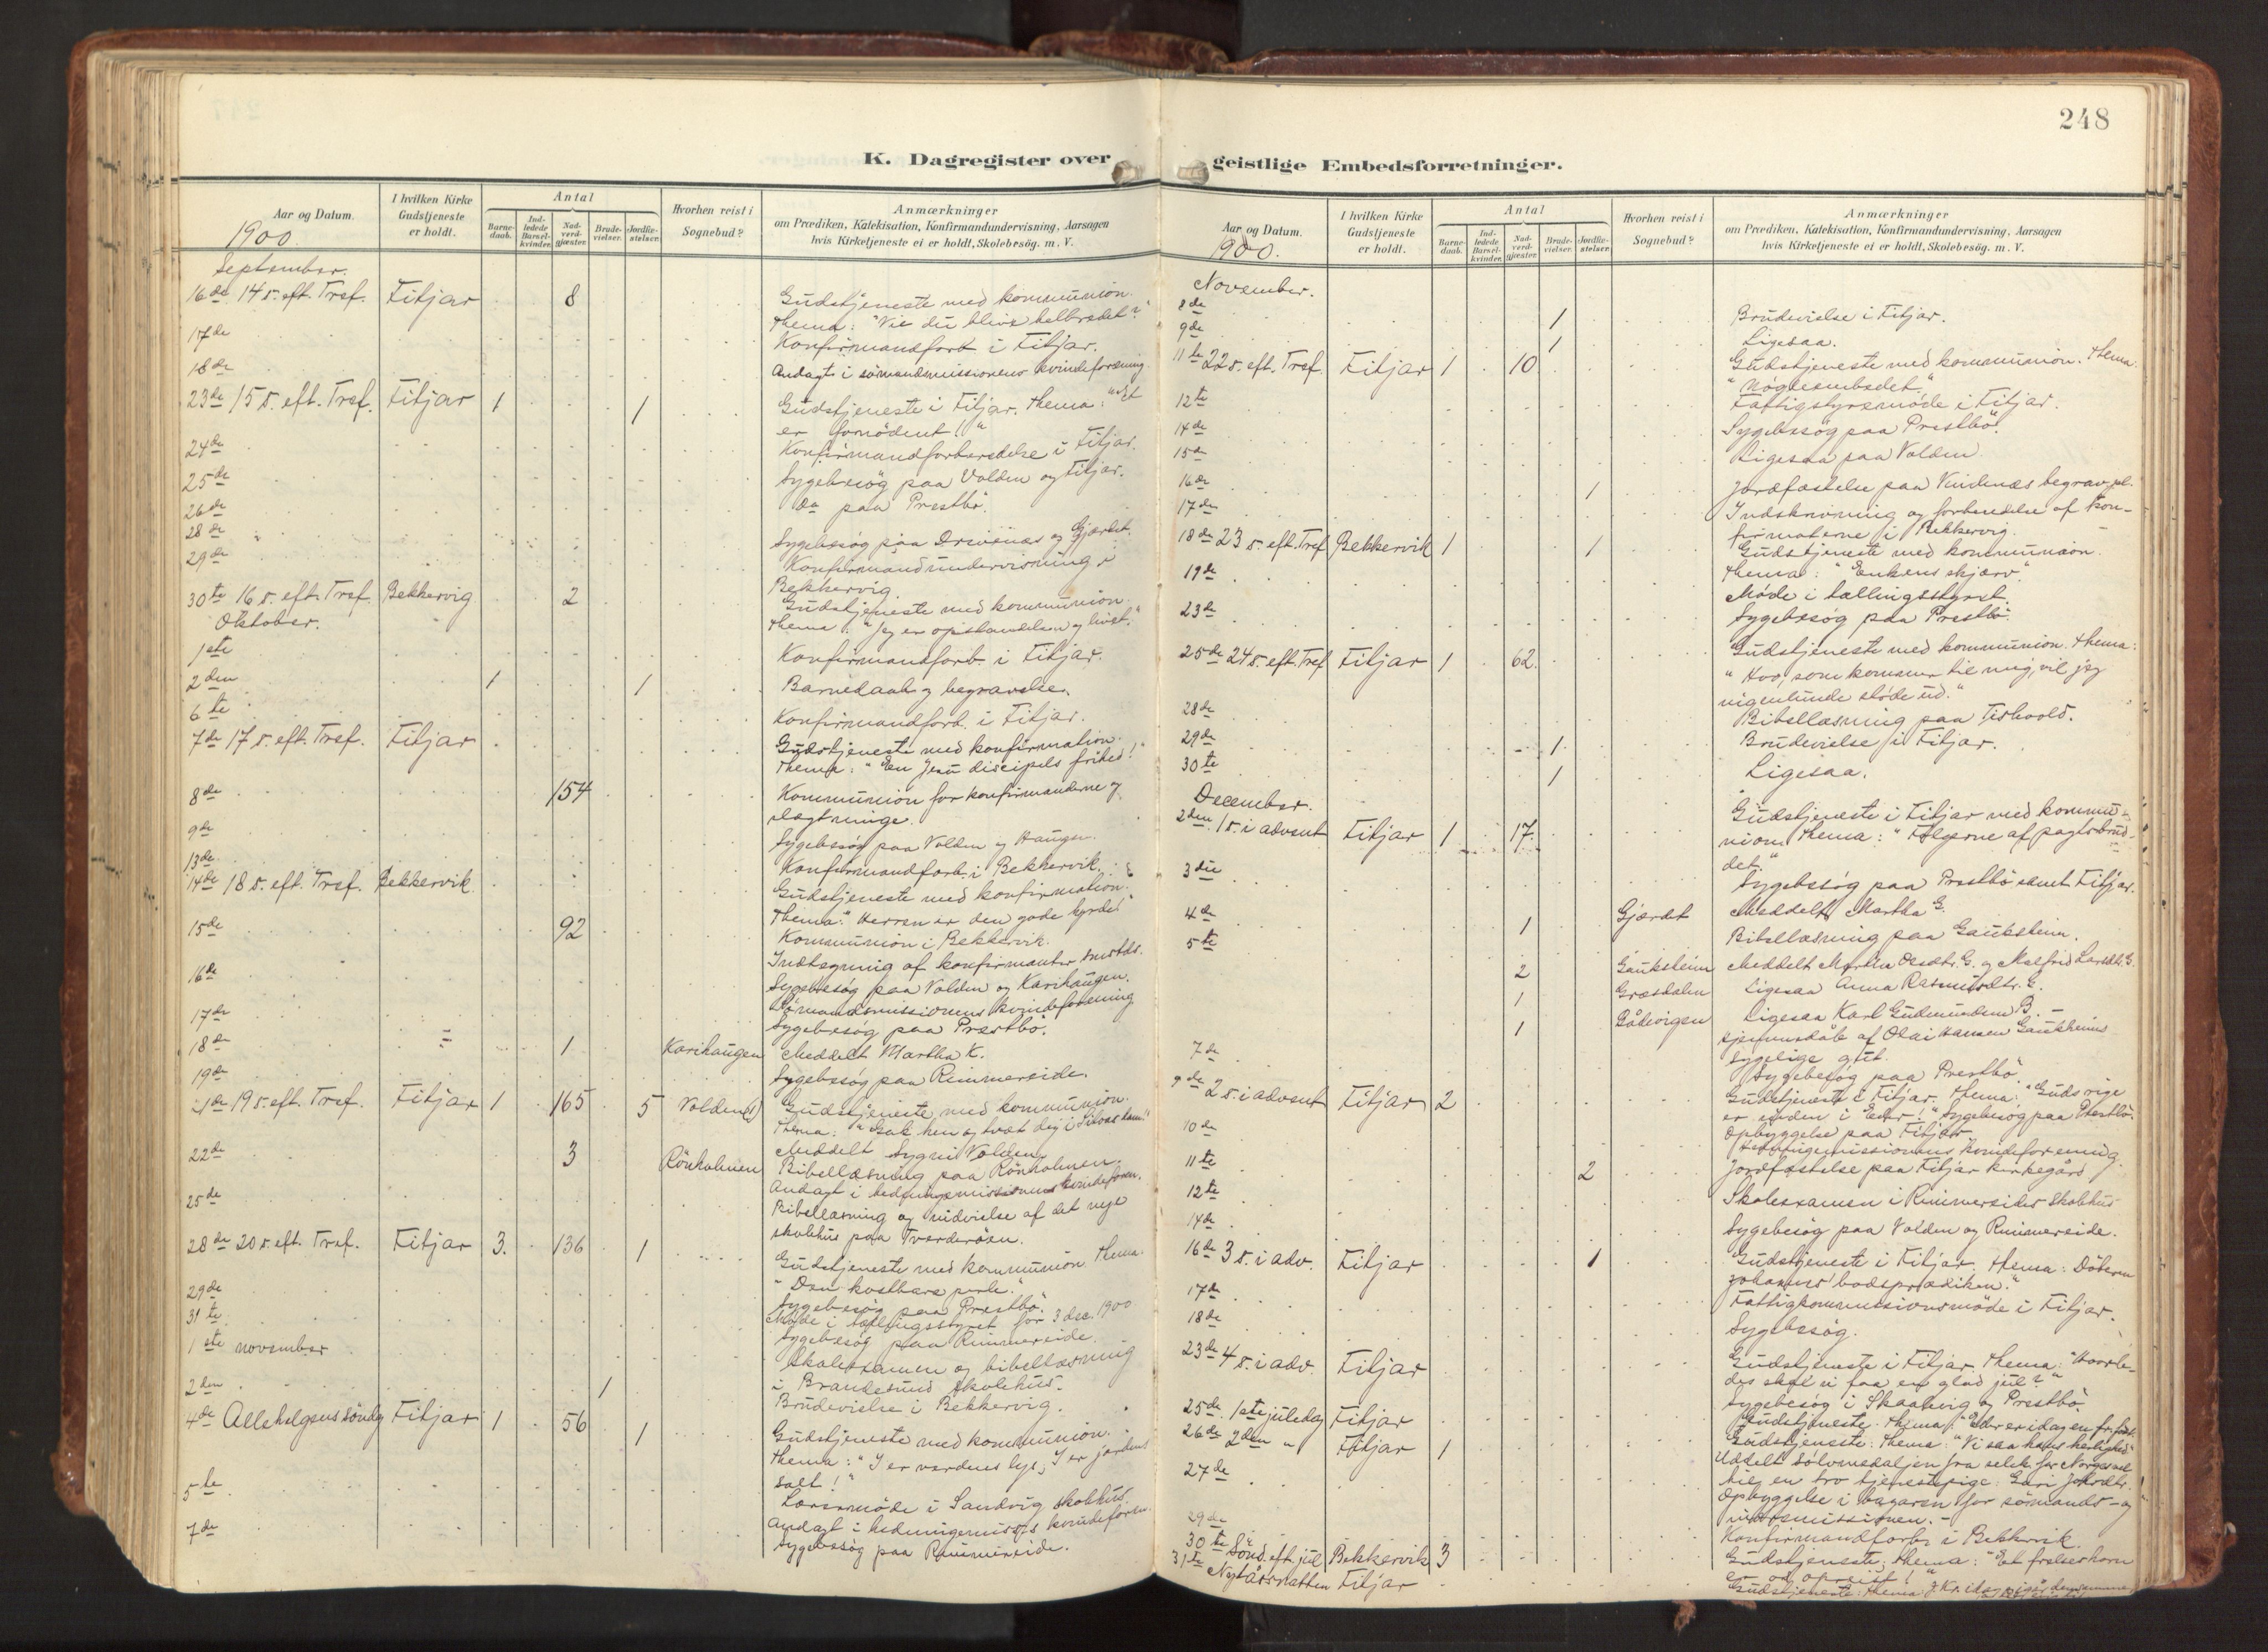 248
K. Dagregister over
Aar og Datum.
I hvilken Kirke
Gudstjeneste
er holdt.
Antal
Barne-
daab.
Ind-
ledede
Barsel-
kvinder.
Nad-
verd-
gjæster.
Brude-
vielser.
Jordfæ-
stelser.
Hvorhen reist i
Sognebud?
Anmærkninger
om Prædiken, Katekisation, Konfirmandundervisning, Aarsagen
hvis Kirketjeneste ei er holdt, Skolebesög. m. V.
1900
September.
16de 14 s. eft. Tref. Fitjar 8 Gudstjeneste med kommunion.
Thema: "Vil du blive helbredet?"
17de Konfirmandforb. i Fitjar.
18de Andagt i sömandsmissionens kvindeforening.
23de 15 s. eft. Tref. Fitjar 1 1 Gudstjeneste i Fitjar. Thema: "Et
er fornödent!"
24de Konfirmandforberedelse i Fitjar.
25de Sygebesög paa Volden og Fitjar.
26de do paa Prestbö.
28de Sygebesög paa Drivenes og Gjærdet.
29de Konfirmandundervisning i
Bekkervig.
30te 16 s. eft. Tref. Bekkervig 2 Gudstjeneste med kommunion.
Thema: "Jeg er opstandelsen og livet."
Oktober.
1ste Konfirmandforb. i Fitjar.
2den 1 1 Barnedaab og begravelse.
6te Konfirmandforb. i Fitjar.
7de 17 s. eft. Tref. Fitjar Gudstjeneste med konfirmation.
Thema: "En Jesu discipels frihed!"
8de 154 Kommunion for konfirmanderne og
slægtninge.
9de Sygebesög paa Volden og Haugen.
13de Konfirmandforb. i Bekkervik.
14de 18 s. eft. Tref. Bekkervik Gudstjeneste med konfirmation.
Thema: "Herren er den gode hyrde!"
15de 92 Kommunion i Bekkervik.
Indtegning af konfirmanter
16de Sygebesög paa Volden og Karihaugen.
17de Sömandsmissionens kvindeforening
Sygebesög paa Prestbö.
18de 1 Karihaugen Meddelt Martha K.
19de Sygebesög paa Rimmereide.
21de 19 s. eft. Tref. Fitjar 1 165 5 Volden(1) Gudstjeneste med kommunion.
Thema: "Gak hen og tvæt dig i Siloas dam!"
Meddelt Sygni Volden.
22de 3 Rönholmen Bibellæsning paa Rönholmen.
Andagt i hedningemissionens kvindeforen.
25de Bibellæsning og indvielse af det nye
skolehus paa Tverderöen.
28de 20 s. eft. Tref. Fitjar 3. 136 1 Gudstjeneste med kommunion Thema:
"Den kostbare perle."
29de Sygebesög paa Prestbö.
31te Möde i tællingsstyret for 3 dec. 1900
Sygebesög paa Rimmereide.
1ste november Skoleexamen og bibellæsning
i Brandesund skolehus.
2den 1 Brudevielse i Bekkervig.
4de Allehelgens söndg Fitjar 1 56 1 Gudstjeneste med kommunion.
Thema: "I er verdens lys; I er jordens
salt!"
5te Lærermöde i Sandvig skolehus
Andagt i hedningemiss's kvindeforen.
7de Sygebesög paa Rimmereide.
geistlige Embedsforretninger.
Aar og Datum.
I hvilken Kirke
Gudstjeneste
er holdt.
Antal
Barne-
daab.
Ind-
ledede
Barsel-
kvinder.
Nad-
verd-
gjæster.
Brude-
vielser.
Jordfæ-
stelser.
Hvorhen reist i
Sognebud?
Anmærkninger
om Prædiken, Katekisation, Konfirmandundervisning, Aarsagen
hvis Kirketjeneste ei er holdt, Skolebesög. m. V.
1900.
November.
8de 1 Brudevielse i Fitjar.
9de 1 Ligesaa.
11te 22 s. eft. Tref. Fitjar 1 10 Gudstjeneste med kommunion. Thema:
"Nögleembedet"
12te Fattigstyremöde i Fitjar.
14de Sygebesög paa Prestbö.
15de Ligesaa paa Volden.
16de 1 Jordfæstelse paa Vindenes begrav.pl.
17de Indskrivning og forberedelse af kon-
firmanterne i Bekkervig.
18de 23 s. eft. Tref Bekkervik 1 1 Gudstjeneste med kommunion.
Thema: "Enkens skjærv."
19de Möde i tællingsstyret.
23de Sygebesög paa Prestbö.
25de 24 s. eft. Tref Fitjar 1 62. Gudstjeneste med kommunion. Thema:
"Hvo, som kommer til mig, vil jeg
ingenlunde støde ud."
28de Bibellæsning paa
29de 1 Brudevielse i Fitjar.
30te 1 Ligesaa.
December.
2den 1 s. i advent Fitjar 1 17. Gudstjeneste i Fitjar med kommu-
nion. Thema: "Fölgerne af pagtsbrud-
det."
3die Sygebesög paa Prestbö samt Fitjar.
4de 1 Gjærdet Meddelt Martha G.
5te Bibellæsning paa Gaukheim.
2 Gaukheim Meddelt Martha Olsdtr. G. og Malfrid Larsdtr. G.
1 Græsdalen Ligesaa Anna Rasmusdtr. G.
1 Gådvigen Ligesaa Karl Gudmundsen B.
Hjemmedåb af Olai Hansen Gaukheims
sygelige gut.
7de Sygebesög paa Prestbö.
9de 2 s. i advent Fitjar 2 Gudstjeneste i Fitjar. Thema: "Guds rige
er inden i Eder!" Sygebesög paa Prestbö.
10de Opbyggelse paa Fitjar,
hedningemissionens kvindeforening.
11te 2 Jordfæstelse paa Fitjar kirkegård
12te Skoleexamen i Rimmereides skolehus
14de Sygebesög paa Volden og Rimmereide.
16de 3 s. i adv. Fitjar 1 Gudstjeneste i Fitjar. Thema: Döberen
Johannes' bodsprædiken."
17de Fattigkommissionsmöde i Fitjar.
18de Sygebesög.
23de 4 s. i adv. Fitjar Gudstjeneste i Fitjar. Thema: "Hvorle-
des skal vi faa en glad jul?"
Sygebesög i Skaalevig og Prestbö.
25de 1ste juledag Fitjar Gudstjeneste. Thema: "Eder er idag en fr. föd".
26de 2den " Fitjar 1 Gudstjeneste: Thema: "Vi saa hans herlighed"
Uddelt sölvmedaljen fra selsk. for Norges vel
til en tro tjenestepige:
27de Opbyggelse i basaren for sömands- og
missionen. -
29de Konfirmandforb. i Bekkervik.
30te Sönd. eft. jul Bekkervik 3 Gudstjeneste; Thema: "Et frelserhorn
er os opreist!"
31te Nytårsnatten Fitjar Gudstjeneste: Thema: J. Kr. idag og igår den samme